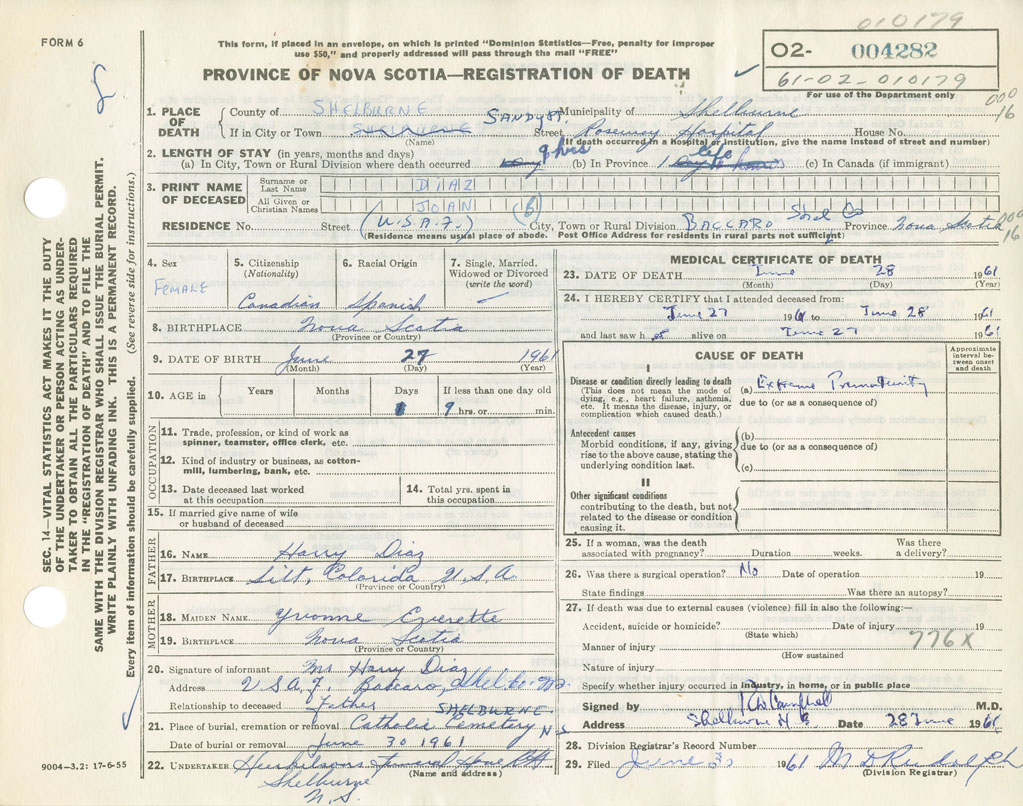 010179
FORM 6
This form, if placed in an envelope, on which is printed "Dominion Statistics—Free, penalty for improper
use $50," and properly addressed will pass through the mail "FREE"
PROVINCE OF NOVA SCOTIA—REGISTRATION OF DEATH
02- 004282
61-02-010179
For use of the Department only
000
16
1. PLACE OF DEATH
County of SHELBURNE Municipality of Shelburne
If in City or Town SHELBURNE SANDY PT. Street Roseway Hospital House No.
(Name) (If death occurred in a Hospital or Institution, give the name instead of street and number)
2. LENGTH OF STAY (in years, months and days)
(a) In City, Town or Rural Division where death occurred 9 hrs (b) In Province life (c) In Canada (if immigrant)
3. PRINT NAME OF DECEASED
Surname or Last Name DIAZ
All Given or Christian Names JOAN (6)
RESIDENCE No. Street (U.S.A.F.) City, Town or Rural Division BACCARO Shel Co Province Nova Scotia
(Residence means usual place of abode. Post Office Address for residents in rural parts not sufficient)
000
16
4. Sex
FEMALE
5. Citizenship
(Nationality)
Canadian
6. Racial Origin
Spanish
7. Single, Married,
Widowed or Divorced
(write the word)
8. BIRTHPLACE Nova Scotia
(Province or Country)
9. DATE OF BIRTH June 27 1961
(Month) (Day) (Year)
10. AGE in Years Months Days If less than one day old
9 hrs. or min.
OCCUPATION
11. Trade, profession, or kind of work as
spinner, teamster, office clerk, etc.
12. Kind of industry or business, as cotton-
mill, lumbering, bank, etc.
13. Date deceased last worked
at this occupation
14. Total yrs. spent in
this occupation
15. If married give name of wife
or husband of deceased
FATHER
16. NAME Harry Diaz
17. BIRTHPLACE Silt, Colorida U.S.A.
(Province or Country)
MOTHER
18. MAIDEN NAME Yvonne Everette
19. BIRTHPLACE Nova Scotia
(Province or Country)
20. Signature of informant Mr Harry Diaz
Address U.S.A.F. Baccaro, Shel Co NS.
Relationship to deceased father
SHELBURNE
21. Place of burial, cremation or removal Catholic Cemetery N.S.
Date of burial or removal June 30 1961
22. UNDERTAKER Funeral Home
(Name and address)
Shelburne
N.S.
MEDICAL CERTIFICATE OF DEATH
23. DATE OF DEATH June 28 1961
(Month) (Day) (Year)
24. I HEREBY CERTIFY that I attended deceased from:
June 27 1961 to June 28 1961
and last saw h er alive on June 27 1961
CAUSE OF DEATH
Approximate interval between onset and death
I
Disease or condition directly leading to death
(This does not mean the mode of
dying, e.g., heart failure, asthenia,
etc. It means the disease, injury, or
complication which caused death.)
(a) Extreme Prematurity
due to (or as a consequence of)
Antecedent causes
Morbid conditions, if any, giving
rise to the above cause, stating the
underlying condition last.
(b)
due to (or as a consequence of)
(c)
II
Other significant conditions
contributing to the death, but not
related to the disease or condition
causing it.
25. If a woman, was the death
associated with pregnancy? Duration weeks. Was there
a delivery?
26. Was there a surgical operation? No Date of operation 19
State findings Was there an autopsy?
27. If death was due to external causes (violence) fill in also the following:—
Accident, suicide or homicide? Date of injury 19
(State which)
776X
Manner of injury
(How sustained
Nature of injury
Specify whether injury occurred in industry, in home, or in public place
Signed by Campbell M.D.
Address Shelburne N S Date 28 June 1961
28. Division Registrar's Record Number
29. Filed June 30 1961 M D Rudolph
(Division Registrar)
9004—3.2: 17-6-55
SEC. 14—VITAL STATISTICS ACT MAKES IT THE DUTY
OF THE UNDERTAKER OR PERSON ACTING AS UNDER-
TAKER TO OBTAIN ALL THE PARTICULARS REQUIRED
IN THE "REGISTRATION OF DEATH" AND TO FILE THE
SAME WITH THE DIVISION REGISTRAR WHO SHALL ISSUE THE BURIAL PERMIT.
WRITE PLAINLY WITH UNFADING INK. THIS IS A PERMANENT RECORD.
Every item of information should be carefully supplied. (See reverse side for instructions.)